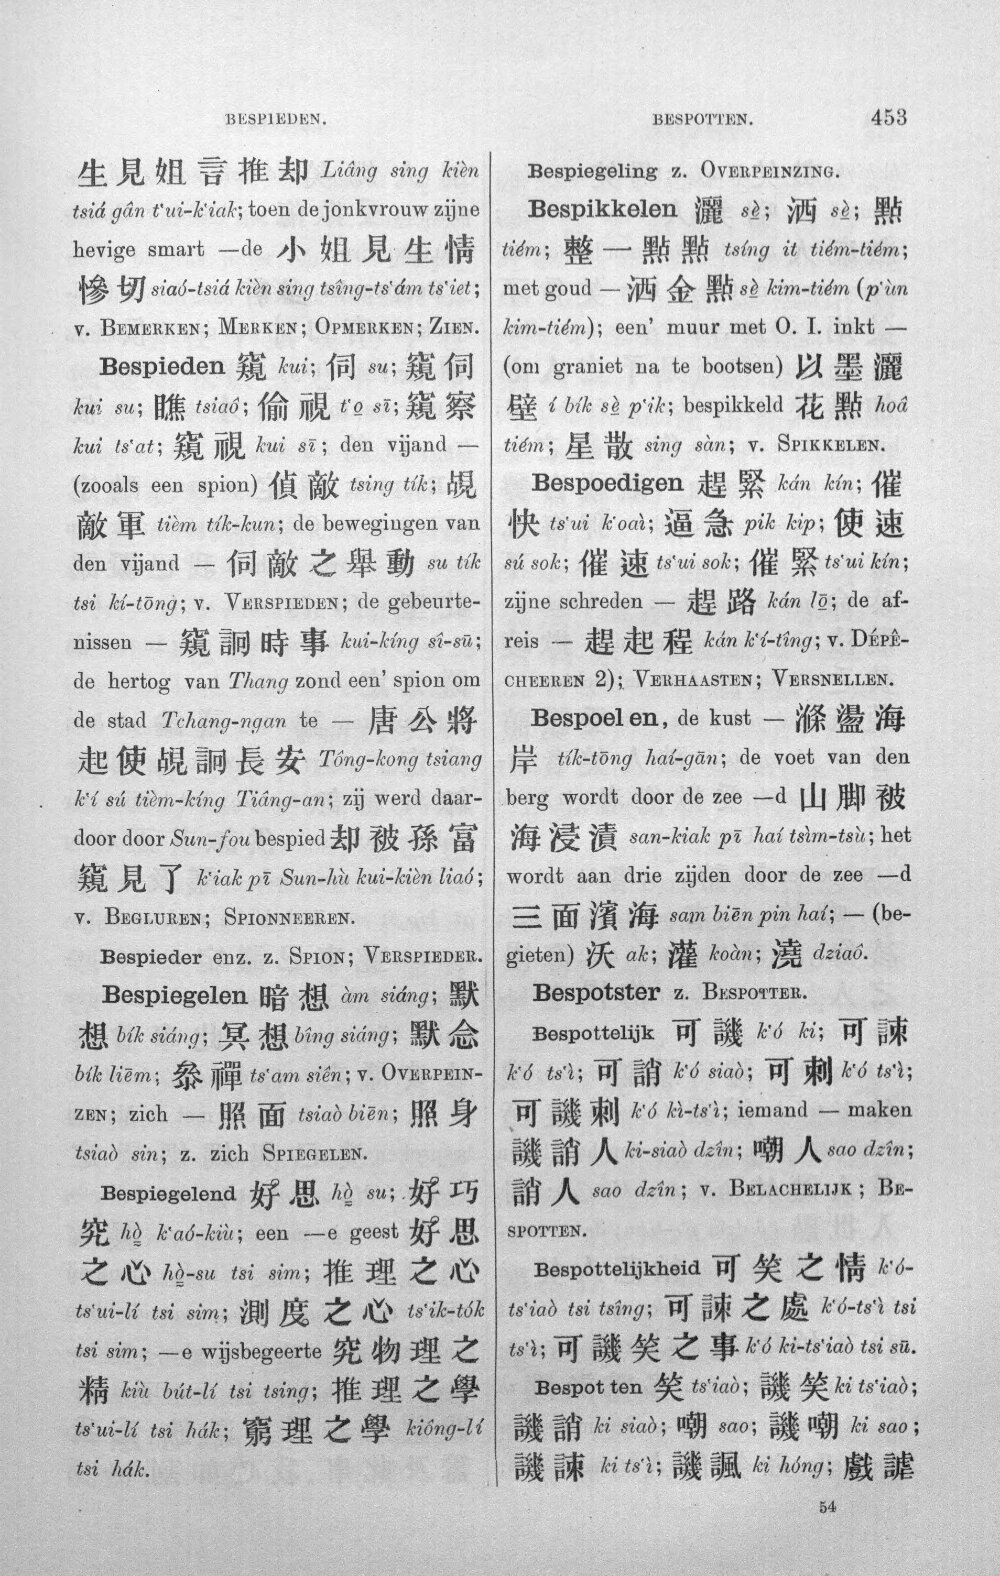 BESPIEDEN.
BESPOTTEN.
453
生見姐言推却 Liâng sing kièn
tsiá gân t‘ui-k‘iak; toen de jonkvrouw zijne
hevige smart —de 小姐見生情
慘切 siaó-tsiá kièn sing tsîng-ts‘ám ts‘iet;
v. BEMERKEN; MERKEN; OPMERKEN; ZIEN.
Bespieden 窺 kui; 伺 su; 窺伺
kui su; 瞧 tsiaô; 偷視 t‘o̱ sī; 窺察
kui ts‘at; 窺視 kui sī; den vijand —
(zooals een spion) 偵敵 tsing tík; 覘
敵軍 tièm tík-kun; de bewegingen van
den vijand — 伺敵之舉動 su tík
tsi kí-tōng; v. VERSPIEDEN; de gebeurte-
nissen — 窺詗時事 kui-kíng sî-sū;
de hertog van Thang zond een’ spion om
de stad Tchang-ngan te — 唐公將
起使覘詗長安 Tông-kong tsiang
k‘í sú tièm-kíng Tiâng-an; zij werd daar-
door door Sun-fou bespied 却被孫富
窺見了 k‘iak pī Sun-hù kui-kièn liaó;
v. BEGLUREN; SPIONNEEREN.
Bespieder enz. z. SPION; VERSPIEDER.
Bespiegelen 暗想 àm siáng; 默
想 bík siáng; 冥想 bîng siáng; 默念
bík liēm; 叅禪 ts‘am siên; v. OVERPEIN-
ZEN; zich — 照面 tsiaò biēn; 照身
tsiaò sin; z. zich SPIEGELEN.
Bespiegelend 好思 hò̱ su; 好巧
究 hò̱ k‘aó-kiù; een —e geest 好思
之心 hò̱-su tsi sim; 推理之心
ts‘ui-lí tsi sim; 測度之心 ts‘ik-tók
tsi sim; —e wijsbegeerte 究物理之
精 kiù bút-lí tsi tsing; 推理之學
ts‘ui-lí tsi hák; 窮理之學 kiông-lí
tsi hák.
Bespiegeling z. OVERPEINZING.
Bespikkelen 灑 sè̱; 洒 sè̱; 點
tiém; 整一點點 tsíng it tiém-tiém;
met goud — 洒金點 sè̱ kim-tiém (p‘ùn
kim-tiém); een’ muur met O. I. inkt —
(om graniet na te bootsen) 以墨灑
壁 í bík sè̱ p‘ik; bespikkeld 花點 hoâ
tiém; 星散 sing sàn; v. SPIKKELEN.
Bespoedigen 趕緊 kán kín; 催
快 ts‘ui k‘oaì; 逼急 pik kip; 使速
sú sok; 催速 ts‘ui sok; 催緊 ts‘ui kín;
zijne schreden — 趕路 kán lō̱; de af-
reis — 趕起程 kán k‘í-tîng; v. DÉPÊ-
CHEEREN 2); VERHAASTEN; VERSNELLEN.
Bespoelen, de kust — 滌盪海
岸 tík-tōng haí-gān; de voet van den
berg wordt door de zee —d 山脚被
海浸漬 san-kiak pī haí tsìm-tsù; het
wordt aan drie zijden door de zee —d
三面濱海 sam biēn pin haí; — (be-
gieten) 沃 ak; 灌 koàn; 澆 dziaô.
Bespotster z. BESPOTTER.
Bespottelijk 可譏 k‘ó ki; 可諫
k‘ó ts‘ì; 可誚 k‘ó siaò; 可刺 k‘ó ts‘ì;
可譏刺 k‘ó kì-ts‘ì; iemand — maken
譏誚人 ki-siaò dzîn; 嘲人 sao dzîn;
誚人 sao dzîn; v. BELACHELIJK; BE-
SPOTTEN.
Bespottelijkheid 可笑之情 k‘ó-
ts‘iaò tsi tsîng; 可諫之處 k‘ó-ts‘ì tsi
ts‘ì; 可譏笑之事 k‘ó ki-ts‘iaò tsi sū.
Bespotten 笑 ts‘iaò; 譏笑 ki ts‘iaò;
譏誚 ki siaò; 嘲 sao; 譏嘲 ki sao;
譏諫 ki ts‘ì; 譏諷 ki hóng; 戲謔
54